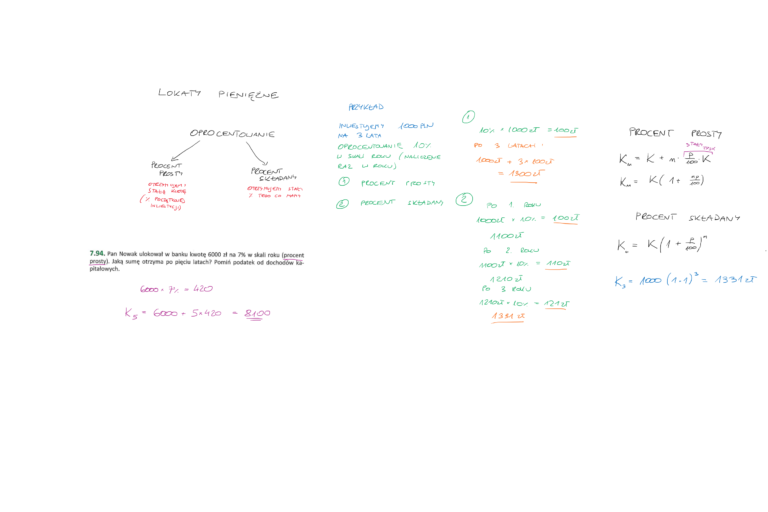 LOKATY PIENIĘŻNE
OPROCENTOWANIE
PROCENT
PROSTY
STAŁA
PROCENT
SKŁADANY
OTRZYMUJEMY
7.94. Pan Nowak ulokował w banku kwotę 6000 zł na 7% w skali roku (procent
prosty). Jaką sumę otrzyma po pięciu latach? Pomiń podatek od dochodów ka-
pitałowych.
6000 · 7% = 420
K₅ = 6000 + 5×420 = 8100
PRZYKŁAD
INWESTUJEMY 1000 PLN
NA 3 LATA
OPROCENTOWANIE 10%
W SKALI ROKU (NALICZANE
RAZ W ROKU)
① PROCENT PROSTY
② PROCENT SKŁADANY
①
10% · 1000zł = 100zł
PO 3 LATACH:
1000zł + 3 · 100zł
= 1300zł
②
PO 1 ROKU
1000zł · 10% = 100zł
1100zł
PO 2 ROKU
1100zł · 10% = 110zł
1210zł
PO 3 ROKU
1210zł · 10% = 121zł
1331zł
PROCENT PROSTY
Kₙ = K + n · p/100 · K
Kₙ = K(1 + np/100)
PROCENT SKŁADANY
Kₙ = K(1 + p/100)ⁿ
K₃ = 1000 (1.1)³ = 1331zł